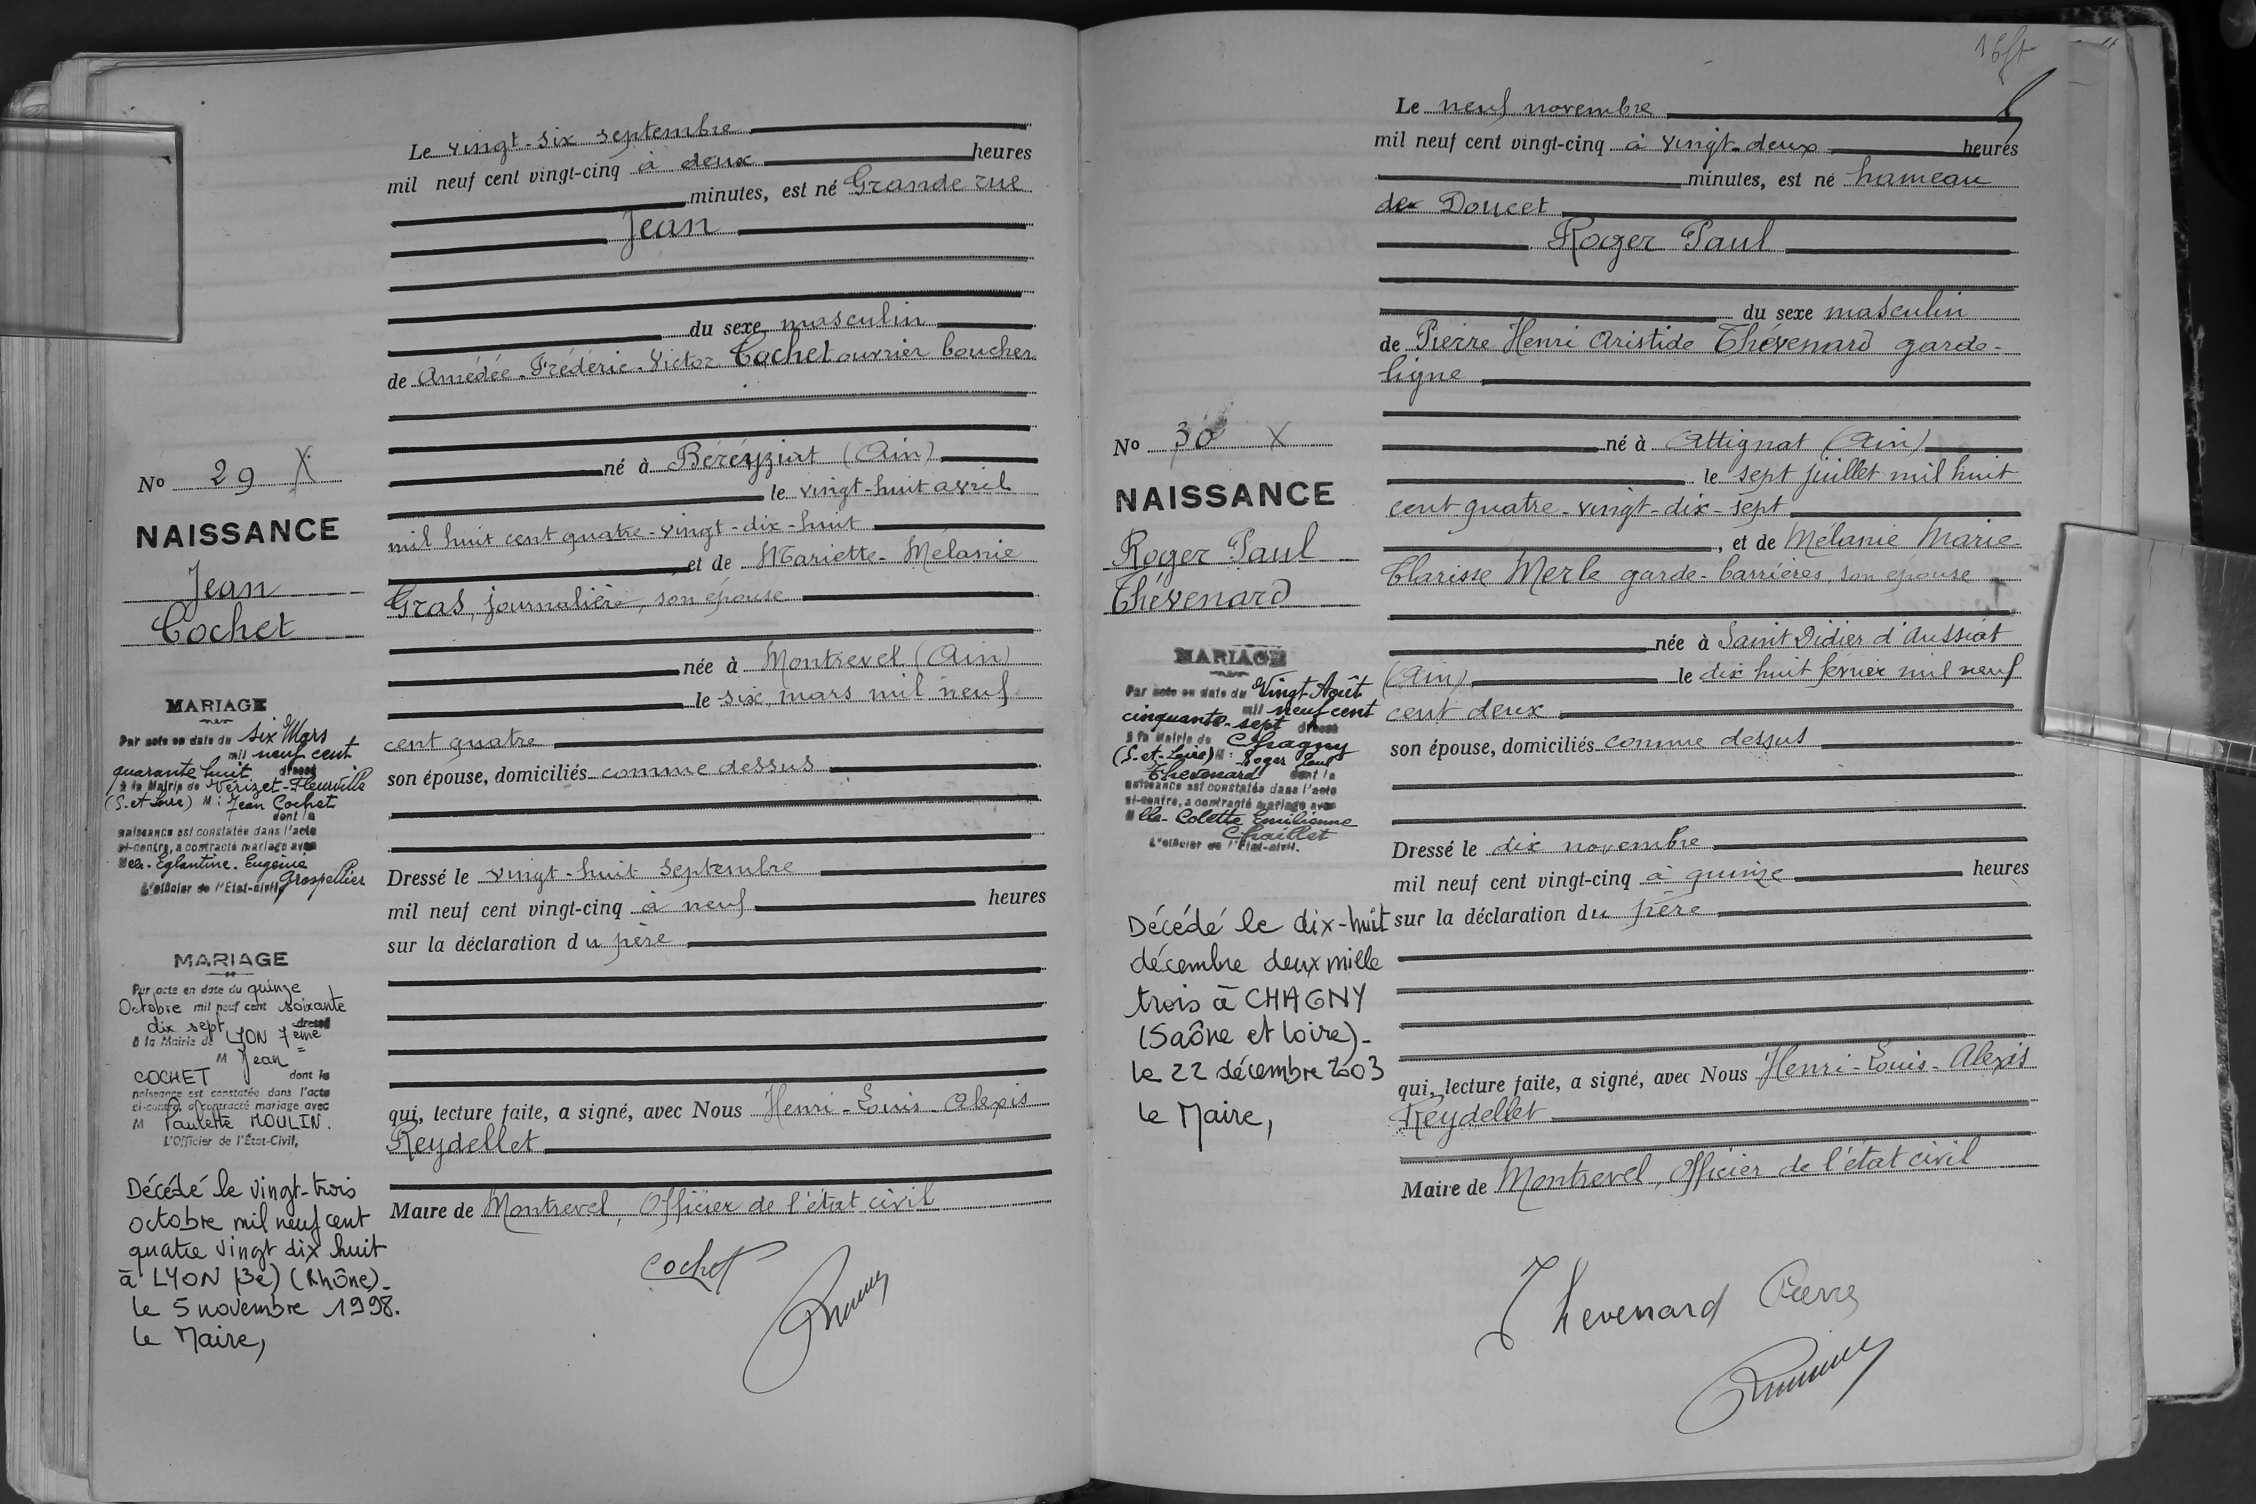 Le vingt-six septembre
mil neuf cent vingt-cinq à deux heures
minutes, est né Grande rue
Jean
du sexe masculin
de Amédée-Frédéric-Victor Cochet ouvrier boucher
né à Béréyziat (Ain)
le vingt-huit avril
mil huit cent quatre-vingt-dix-huit
et de Mariette-Mélanie
Gras, journalière, son épouse
née à Montrevel (Ain)
le six mars mil neuf
cent quatre
son épouse, domiciliés comme dessus
Dressé le vingt-huit septembre
mil neuf cent vingt-cinq à neuf heures
sur la déclaration du père
qui, lecture faite, a signé, avec Nous Henri-Louis-Alexis
Reydellet
Maire de Montrevel, Officier de l'état civil
Cochet
No 29 X
NAISSANCE
Jean
Cochet
MARIAGE
Par acte en date du six Mars
mil neuf cent
quarante huit dressé
à la Mairie de Vérizet-Fleurville
(S.et Loire) M: Jean Cochet
dont la
naissance est constatée dans l'acte
ci-contre, a contracté mariage avec
Melle Eglantine-Eugénie
Grospellier
L'officier de l'Etat-civil,
MARIAGE
Par acte en date du quinze
Octobre mil neuf cent soixante
dix sept dressé
à la Mairie de LYON 7ème
M Jean
COCHET dont la
naissance est constatée dans l'acte
ci-contre, a contracté mariage avec
M Paulette MOULIN.
L'Officier de l'État-Civil,
Décédé le vingt-trois
octobre mil neuf cent
quatre vingt dix huit
à LYON (3e) (Rhône)-
le 5 novembre 1998.
le Maire,
Le neuf novembre
mil neuf cent vingt-cinq à vingt-deux heures
minutes, est né hameau
de Doucet
Roger Paul
du sexe masculin
de Pierre Henri Aristide Thévenard garde-
ligne
né à Attignat (Ain)
le sept juillet mil huit
cent quatre-vingt-dix-sept
, et de Mélanie Marie
Clarisse Merle garde-barrières, son épouse
née à Saint Didier d'Aussiat
(Ain) le dix huit février mil neuf
cent deux
son épouse, domiciliés comme dessus
Dressé le dix novembre
mil neuf cent vingt-cinq à quinze heures
sur la déclaration du père
qui, lecture faite, a signé, avec Nous Henri-Louis-Alexis
Reydellet
Maire de Montrevel, Officier de l'état civil
Thevenard Pierre
No 30 X
NAISSANCE
Roger Paul
Thévenard
MARIAGE
Par acte en date du Vingt Août
mil neuf cent
cinquante-sept dressé
à la Mairie de Chagny
(S.-et-Loire) M: Roger Paul
Thevenard dont la
naissance est constatée dans l'acte
ci-contre, a contracté mariage avec
Melle Colette Emilienne
Chaillet
L'officier de l'Etat-civil.
Décédé le dix-huit
décembre deux mille
trois à CHAGNY
(Saône et Loire)-
le 22 décembre 2003
le Maire,